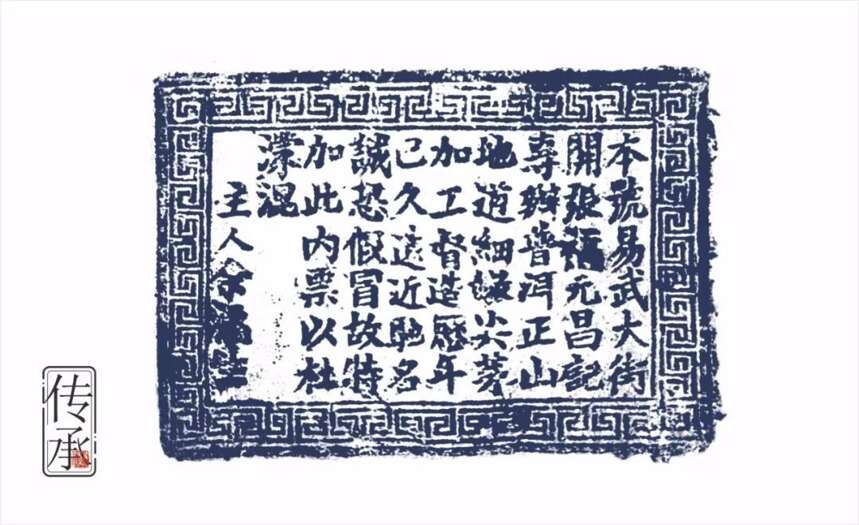 本號易武大街
開張福元昌記
專辦普洱正山
地道細嫩尖芽
加工督造歷年
已久遠近馳名
誠恐假冒故特
加此内票以杜
濛混
主人余福生
传承